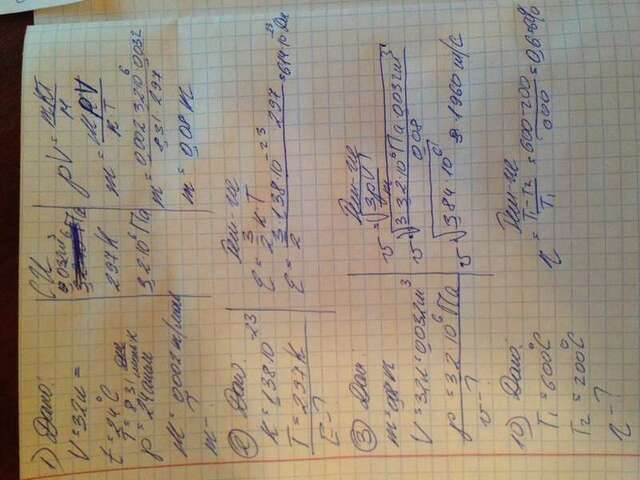 1) Дано
V = 3,2 л =
t = 24°C
R = 8,31
p = 24 атм
M = 0,002 кг/моль
m - ?
СИ
0,0032 м³
297 K
3,2·10⁶ Па
pV = mRT/M
m = MpV/RT
m = 0,002·3,2·10⁶·0,0032/8,31·297
m = 0,08 кг
② Дано
K = 1,38·10⁻²³
T = 297 K
E - ?
Реш-ие
E = 3/2 kT
E = 3·1,38·10⁻²³·297/2
③ Дано
V = 3,2 л = 0,0032 м³
p = 3,2·10⁶ Па
v - ?
Реш-ие
v = √3pV/m
v = √3·3,2·10⁶ Па·0,0032 м³/0,08
v = √3,84·10⁶ ≈ 1960 м/с
10) Дано
T₁ = 600°C
T₂ = 200°C
η - ?
Реш-ие
η = T₁-T₂/T₁ = 600-200/600 =